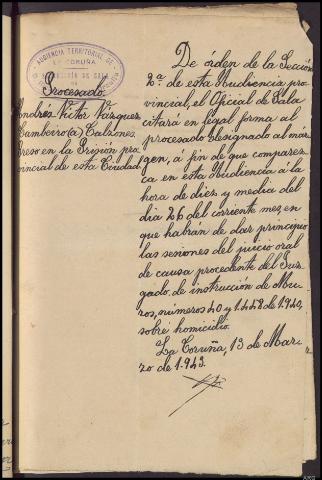 AUDIENCIA TERRITORIAL DE
LA CORUÑA
Procesado
Andrés Víctor Vázquez
Cambeiro (a) Calzones.
Preso en la Prisión pro
vincial de esta Ciudad
De órden de la Sección
2ª. de esta Audiencia pro
vincial, el Oficial de Sala
citará en legal forma al
procesado designado al már
gen, á fin de que comparez
ca en esta Audiencia á la
hora de diez y media del
día 26 del corriente mes, en
que habrán de dar principio
las sesiones del juicio oral
de causa procedente del Juz
gado de instrucción de Mu-
ros, números 40 y 1.458 de 1.940,
sobre homicidio.
La Coruña, 13 de Mar-
zo de 1.943.